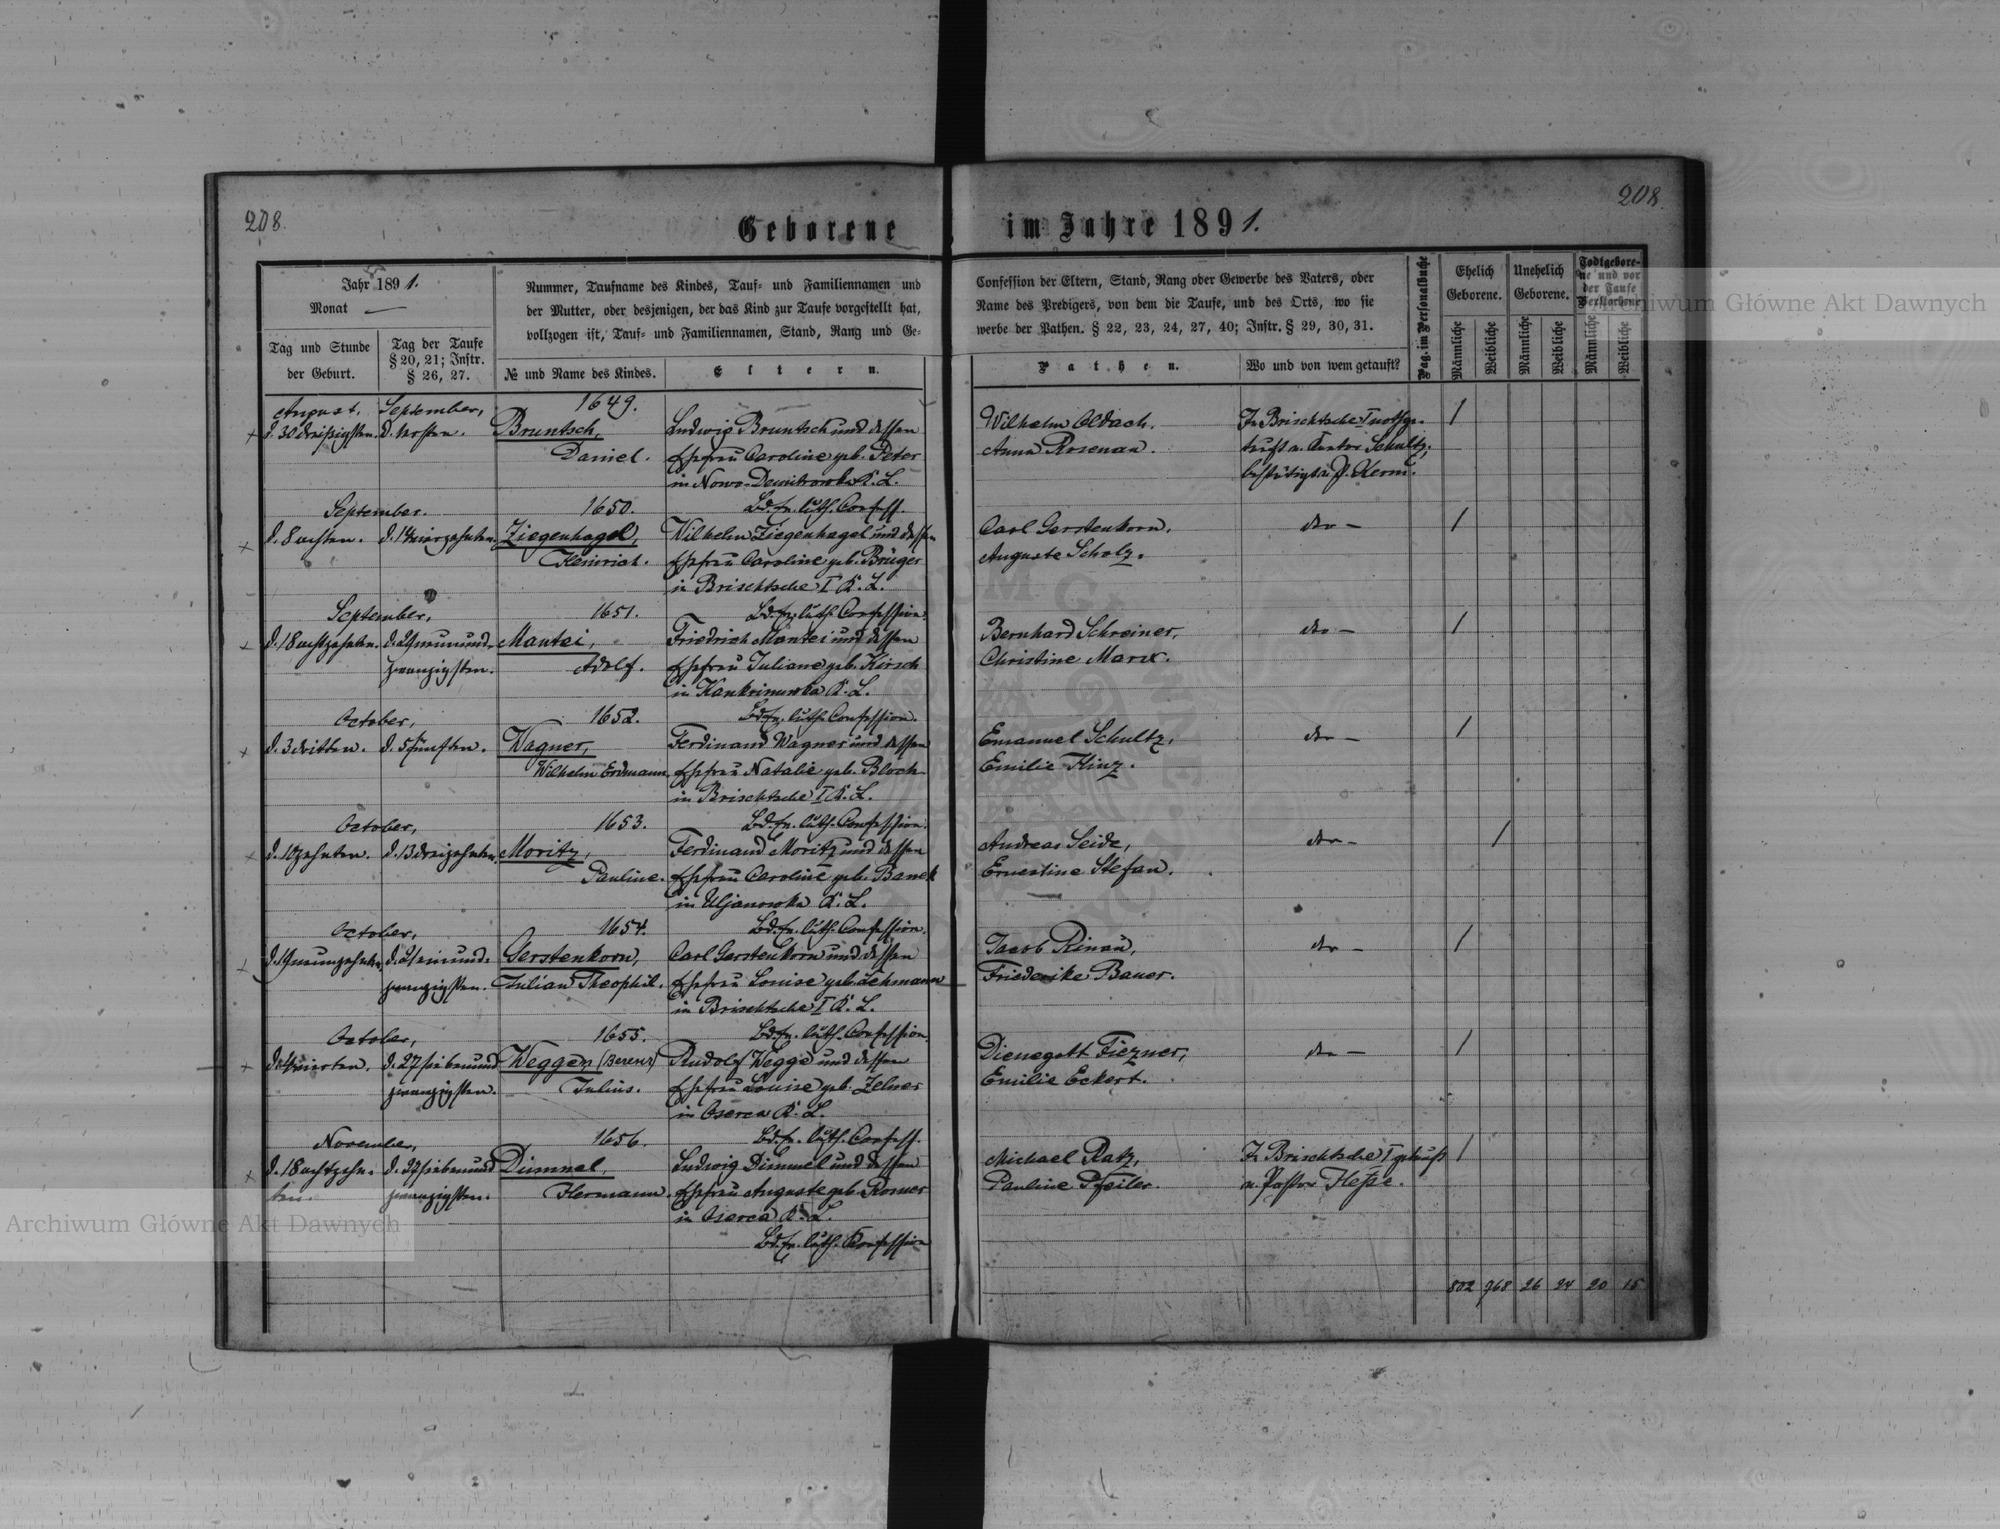 208.
208
Geborene im Jahre 1891.
Jahr 1891.
Monat —
Tag und Stunde der Geburt.
Tag der Taufe § 20, 21; Instr. § 26, 27.
Nummer, Taufname des Kindes, Tauf- und Familiennamen und
der Mutter, oder desjenigen, der das Kind zur Taufe vorgestellt hat,
vollzogen ist, Tauf- und Familiennamen, Stand, Rang und Ge-
№ und Name des Kindes.
Eltern.
Confession der Eltern, Stand, Rang oder Gewerbe des Vaters, oder
Name des Predigers, von dem die Taufe, und des Orts, wo sie
werbe der Pathen. § 22, 23, 24, 27, 40; Instr. § 29, 30, 31.
Pathen.
Wo und von wem getauft?
Pag. im Personalbuche
Ehelich Geborene.
Unehelich Geborene.
Todtgeborene und vor der Taufe Verstorbene
Männliche
Weibliche
Männliche
Weibliche
Männliche
Weibliche
August. September, 1649.
d. 30 dreißigsten. d. 1 ersten. Bruntsch, Ludwig Bruntsch und dessen
Daniel. Ehefrau Caroline geb. Peter
in Nowo-Demitrowka K. L.
Bd. ev. luth. Confess.
Wilhelm Oldach.
Anna Rosenau.
In Brischtsche I nothge-
tauft v. Cantor Schultz;
bestätigt v. P. Kerm.
1
September. 1650.
d. 8 achten. d. 14 vierzehnten. Ziegenhagel, Wilhelm Ziegenhagel und dessen
Heinrich. Ehefrau Caroline geb. Brüger
in Brischtsche I K. L.
Bd. ev. luth. Confession.
Carl Gerstenkorn,
Auguste Scholz.
dto —
1
September, 1651.
d. 18 achtzehnten. d. 29 neunund- Mantei, Friedrich Mantei und dessen
zwanzigsten. Adolf. Ehefrau Juliane geb. Kirsch
in Kankrinowka K. L.
Bd. ev. luth. Confession.
Bernhard Schreiner,
Christine Marx.
dto —
1
October, 1652.
d. 3 dritten. d. 5 fünften. Wagner, Ferdinand Wagner und dessen
Wilhelm Erdmann. Ehefrau Natalie geb. Bloch
in Brischtsche I K. L.
Bd. ev. luth. Confession.
Emanuel Schultz,
Emilie Hinz.
dto —
1
October, 1653.
d. 10 zehnten. d. 13 dreizehnten. Moritz, Ferdinand Moritz und dessen
Pauline. Ehefrau Caroline geb. Banek
in Uljanowka K. L.
Bd. ev. luth. Confession.
Andreas Seide,
Ernestine Stefan.
dto —
1
October, 1654.
d. 19 neunzehnten. d. 21 einund- Gerstenkorn, Carl Gerstenkorn und dessen
zwanzigsten. Julian Theophil. Ehefrau Louise geb. Lehmann
in Brischtsche I K. L.
Bd. ev. luth. Confession.
Jacob Rinau,
Friederike Bauer.
dto —
1
October, 1655.
d. 4 vierten. d. 27 siebenund Wegge, Rudolf Wegge und dessen
zwanzigsten. Julius. Ehefrau Louise geb. Zelner
in Oserca K. L.
Bd. ev. luth. Confess.
Dienegott Fiezner,
Emilie Eckert.
dto —
1
November, 1656.
d. 18 achtzehn- d. 27 siebenund Dümmel, Ludwig Dümmel und dessen
ten. zwanzigsten. Hermann. Ehefrau Auguste geb. Romer
in Oserca K. L.
Bd. ev. luth. Konfession
Michael Ratz,
Pauline Pfeiler.
In Brischtsche I getauft
v. Pastor Hesse.
1
802 768 26 24 20 15
Archiwum Główne Akt Dawnych
Archiwum Główne Akt Dawnych